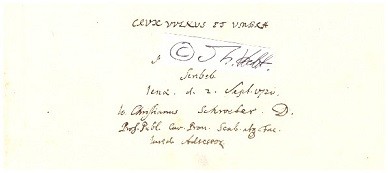 CRUX VULNUS ET UMBRA
© J H
Scribeb
Jenæ d. 2. Sept. 1720.
D. Christianus Schroeter. D.
Prof. Publ. Cur. Prov. Scab. atq. Fac.
Jurid. ADSESSOR